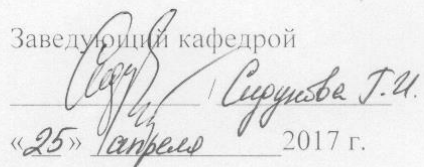 Заведующий кафедрой
/ Сидунова Г.И.
«25» апреля 2017 г.